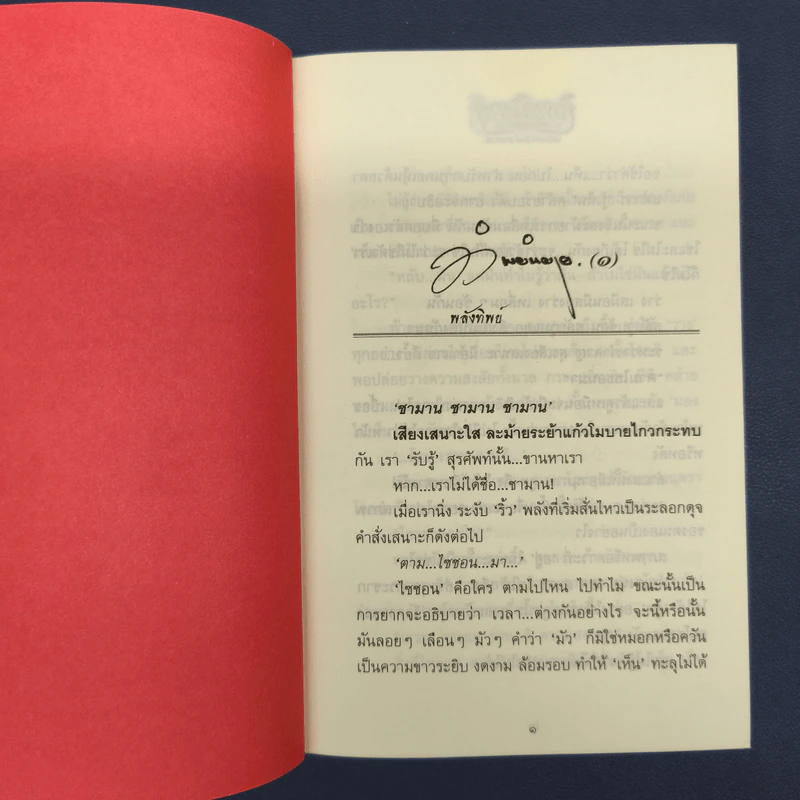 (๑)
พลังทิพย์
‘ชามาน ชามาน ชามาน’
เสียงเสนาะใส ละม้ายระย้าแก้วโมบายไกวกระทบ
กัน เรา ‘รับรู้’ สุรศัพท์นั้น...ขานหาเรา
หาก...เราไม่ได้ชื่อ...ชามาน!
เมื่อเรานิ่ง ระงับ ‘ริ้ว’ พลังที่เริ่มสั่นไหวเป็นระลอกดุจ
คำสั่งเสนาะก็ดังต่อไป
‘ตาม...ไซซอน...มา...’
‘ไซซอน’ คือใคร ตามไปไหน ไปทำไม ขณะนั้นเป็น
การยากจะอธิบายว่า เวลา...ต่างกันอย่างไร จะนี้หรือนั้น
มันลอยๆ เลือนๆ มัวๆ คำว่า ‘มัว’ ก็มิใช่หมอกหรือควัน
เป็นความขาวระยิบ งดงาม ล้อมรอบ ทำให้ ‘เห็น’ ทะลุไม่ได้
๑